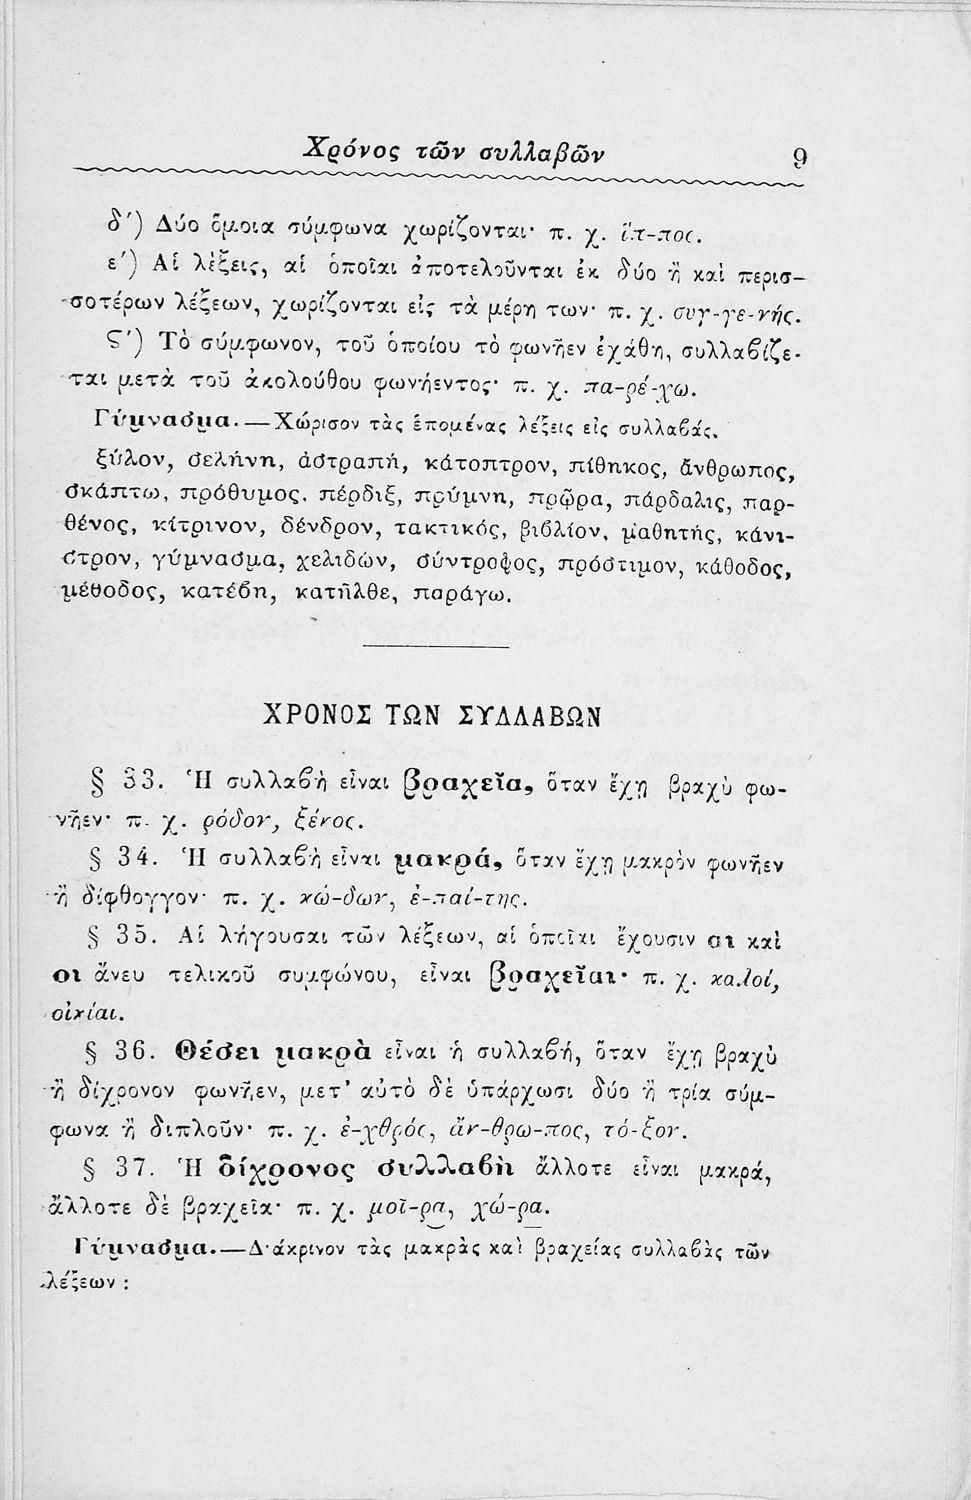 Χρόνος τῶν συλλαβῶν 9
δ΄) Δύο ὅμοια σύμφωνα χωρίζονται· π. χ. ἵπ-πος.
ε΄) Αἱ λέξεις, αἱ ὁποῖαι ἀποτελοῦνται ἐκ δύο ἢ καὶ περισ-
σοτέρων λέξεων, χωρίζονται εἰς τὰ μέρη των· π. χ. συγ-γε-νής.
Ϛ΄) Τὸ σύμφωνον, τοῦ ὁποίου τὸ φωνῆεν ἐχάθη, συλλαβίζε-
ται μετὰ τοῦ ἀκολούθου φωνήεντος· π. χ. πα-ρέ-χω.
Γύμνασμα.—Χώρισον τὰς ἑπομένας λέξεις εἰς συλλαβάς.
ξύλον, σελήνη, ἀστραπή, κάτοπτρον, πίθηκος, ἄνθρωπος,
σκάπτω, πρόθυμος, πέρδιξ, πρύμνη, πρῷρα, πάρδαλις, παρ-
θένος, κίτρινον, δένδρον, τακτικός, βιβλίον, μαθητής, κάνι-
στρον, γύμνασμα, χελιδών, σύντροφος, πρόστιμον, κάθοδος,
μέθοδος, κατέβη, κατῆλθε, παράγω.
ΧΡΟΝΟΣ ΤΩΝ ΣΥΛΛΑΒΩΝ
§ 33. Ἡ συλλαβὴ εἶναι βραχεῖα, ὅταν ἔχῃ βραχὺ φω-
νῆεν· π. χ. ρόδον, ξένος.
§ 34. Ἡ συλλαβὴ εἶναι μακρά, ὅταν ἔχῃ μακρὸν φωνῆεν
ἢ δίφθογγον· π. χ. κώ-δων, ἐ-παί-της.
§ 35. Αἱ λήγουσαι τῶν λέξεων, αἱ ὁποῖαι ἔχουσιν αι καὶ
οι ἄνευ τελικοῦ συμφώνου, εἶναι βραχεῖαι· π. χ. καλοί,
οἰκίαι.
§ 36. Θέσει μακρὰ εἶναι ἡ συλλαβή, ὅταν ἔχῃ βραχὺ
ἢ δίχρονον φωνῆεν, μετ' αὐτὸ δὲ ὑπάρχωσι δύο ἢ τρία σύμ-
φωνα ἢ διπλοῦν· π. χ. ἐ-χθρός, ἄν-θρω-πος, τό-ξον.
§ 37. Ἡ δίχρονος συλλαβὴ ἄλλοτε εἶναι μακρά,
ἄλλοτε δὲ βραχεῖα· π. χ. μοῖ-ρα, χώ-ρα.
Γύμνασμα.—Διάκρινον τὰς μακρὰς καὶ βραχείας συλλαβὰς τῶν
λέξεων :